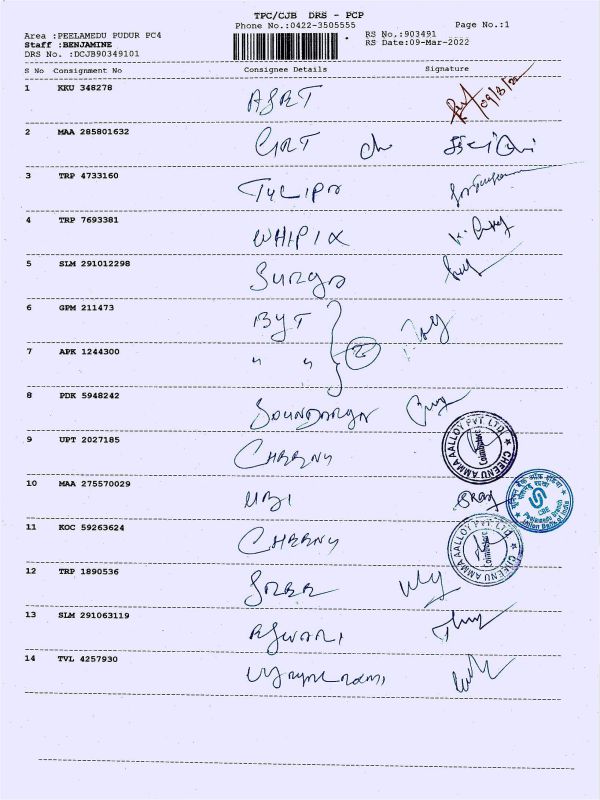 TPC/CJB DRS - PCP
Phone No.:0422-3505555
Page No.:1
Area :PEELAMEDU PUDUR PC4
Staff :BENJAMINE
DRS No. :DCJB90349101
RS No.:903491
RS Date:09-Mar-2022
S No Consignment No Consignee Details Signature
1 KKU 348278 09/3/22
2 MAA 285801632 GRT
3 TRP 4733160 Tulips
4 TRP 7693381 WHIPIX
5 SLM 291012298 Surya
6 GPM 211473 BYT
7 APK 1244300 " " 2
8 PDK 5948242 SOUNDARYA
9 UPT 2027185 CHEENU
CHEENU AMMA AALLOY PVT. LTD.
Coimbatore
10 MAA 275570029 UBI
यूनियन बैंक ऑफ इंडिया
CBE
Union Bank of India
11 KOC 59263624 CHEENU
CHEENU AMMA AALLOY PVT LTD
Coimbatore
12 TRP 1890536
13 SLM 291063119
14 TVL 4257930